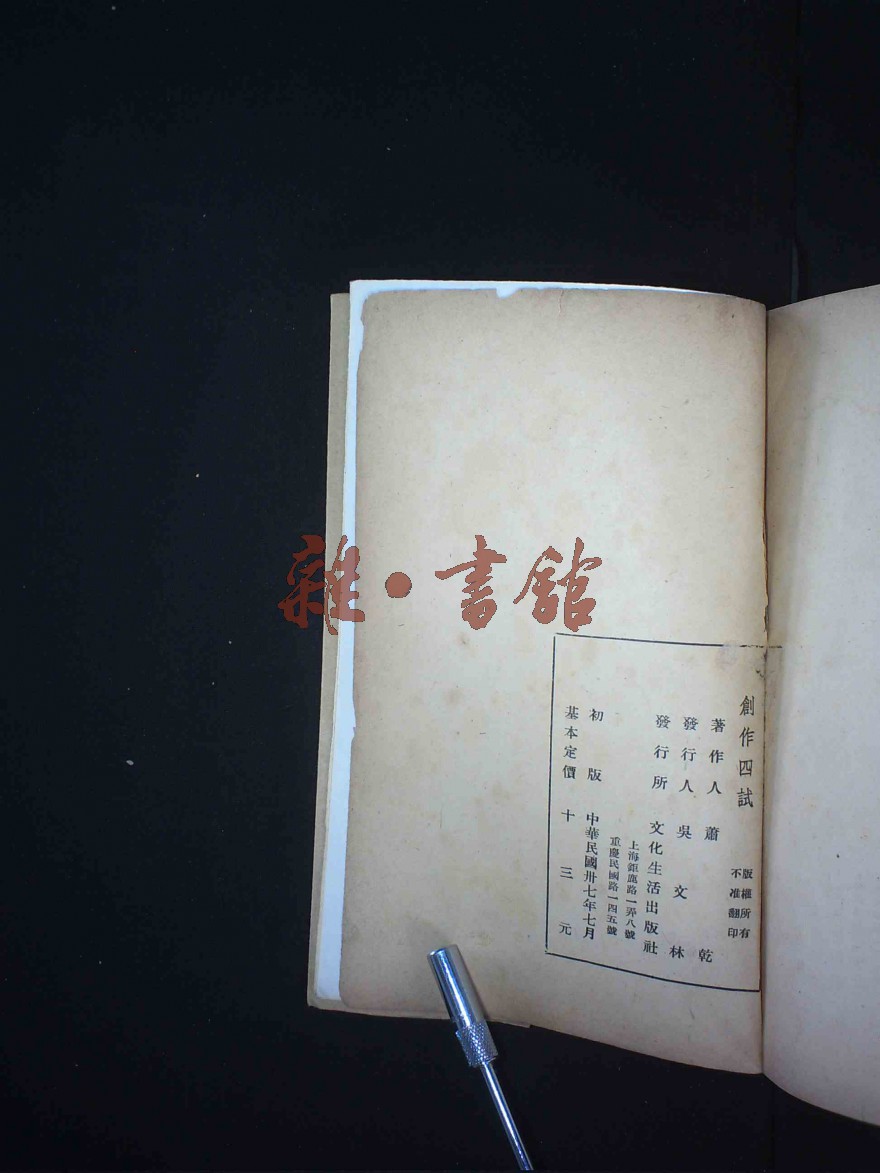 創作四試
版權所有
不准翻印
著作人 蕭乾
發行人 吳文林
發行所 文化生活出版社
上海鉅鹿路一弄八號
重慶民國路一四五號
初版 中華民國卅七年七月
基本定價 十三元
雜·書館